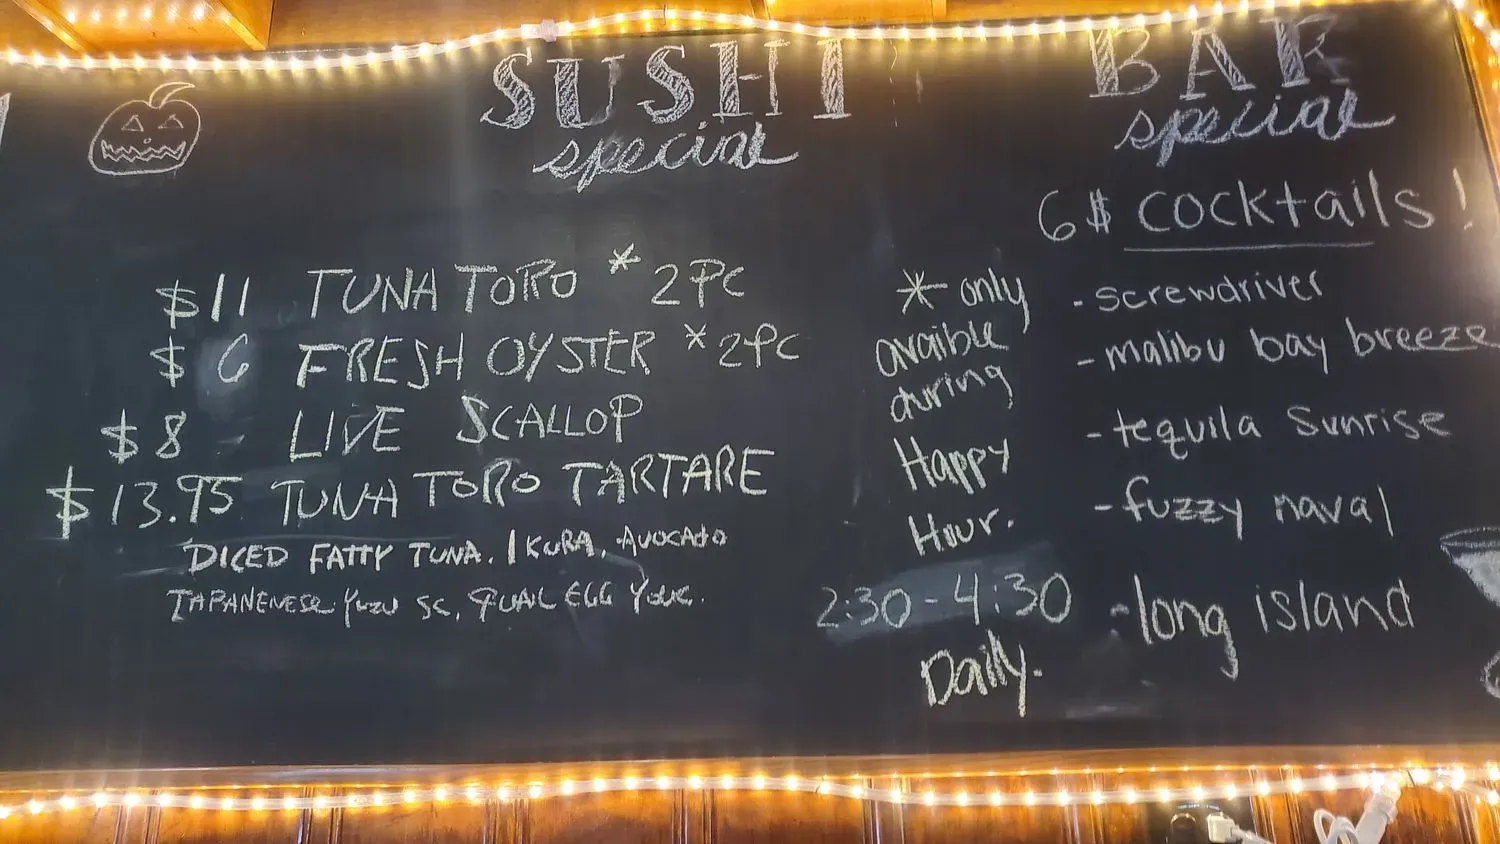 SUSHI
special
$11 TUNA TORO * 2PC
$6 FRESH OYSTER *2PC
$8 LIVE SCALLOP
$13.95 TUNA TORO TARTARE
DICED FATTY TUNA. IKURA, AVOCADO
JAPANENESE YUZU SC, QUAIL EGG YOLK.
* only
avaible
during
Happy
Hour.
2:30 - 4:30
Daily.
BAR
special
6$ cocktails!
- screwdriver
- malibu bay breeze
- tequila sunrise
- fuzzy naval
- long island